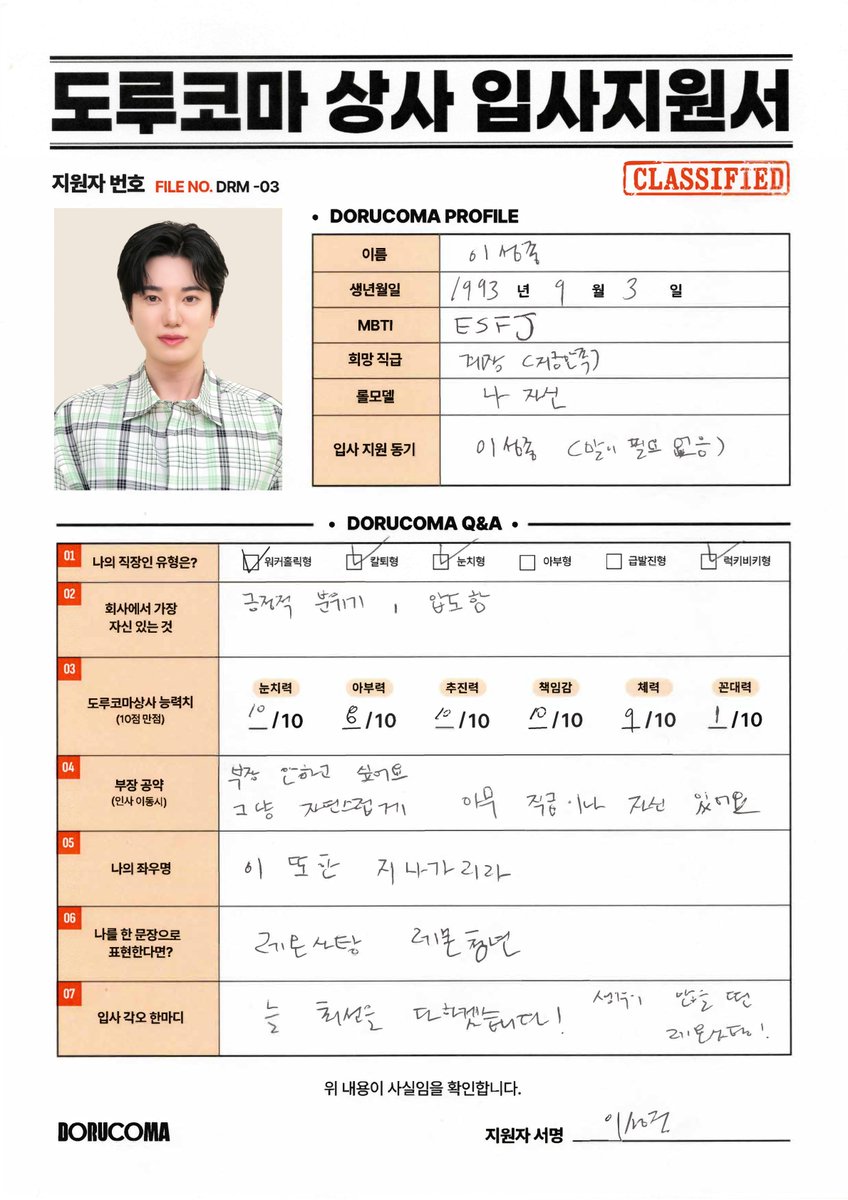 도루코마 상사 입사지원서
지원자 번호 FILE NO. DRM -03
CLASSIFIED
• DORUCOMA PROFILE
이름 이성종
생년월일 1993 년 9 월 3 일
MBTI ESFJ
희망 직급
롤모델 나 자신
입사 지원 동기 이성종 (말이 필요 없음)
• DORUCOMA Q&A •
01 나의 직장인 유형은? 워커홀릭형 칼퇴형 눈치형 아부형 급발진형 럭키비키형
02 회사에서 가장 자신 있는 것 긍정적 분위기, 압도함
03 도루코마상사 능력치 (10점 만점)
눈치력 아부력 추진력 책임감 체력 꼰대력
10/10 6/10 10/10 10/10 9/10 1/10
04 부장 공약 (인사 이동시) 부장 안하고 싶어요
그냥 자연스럽게 아무 직급이나 자신 있어요
05 나의 좌우명 이 또한 지나가리라
06 나를 한 문장으로 표현한다면? 레몬사탕 레몬청년
07 입사 각오 한마디 늘 최선을 다하겠습니다! 레몬사탕!
위 내용이 사실임을 확인합니다.
DORUCOMA 지원자 서명 이성종